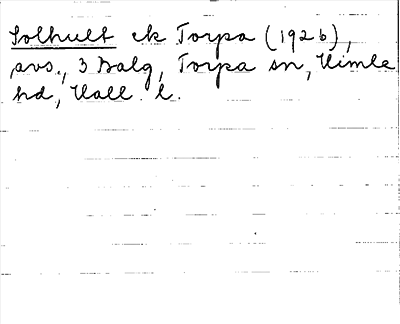 Solhult ek Torpa (1926),
avs., 3 Balg, Torpa sn, Himle
hd, Hall. l.